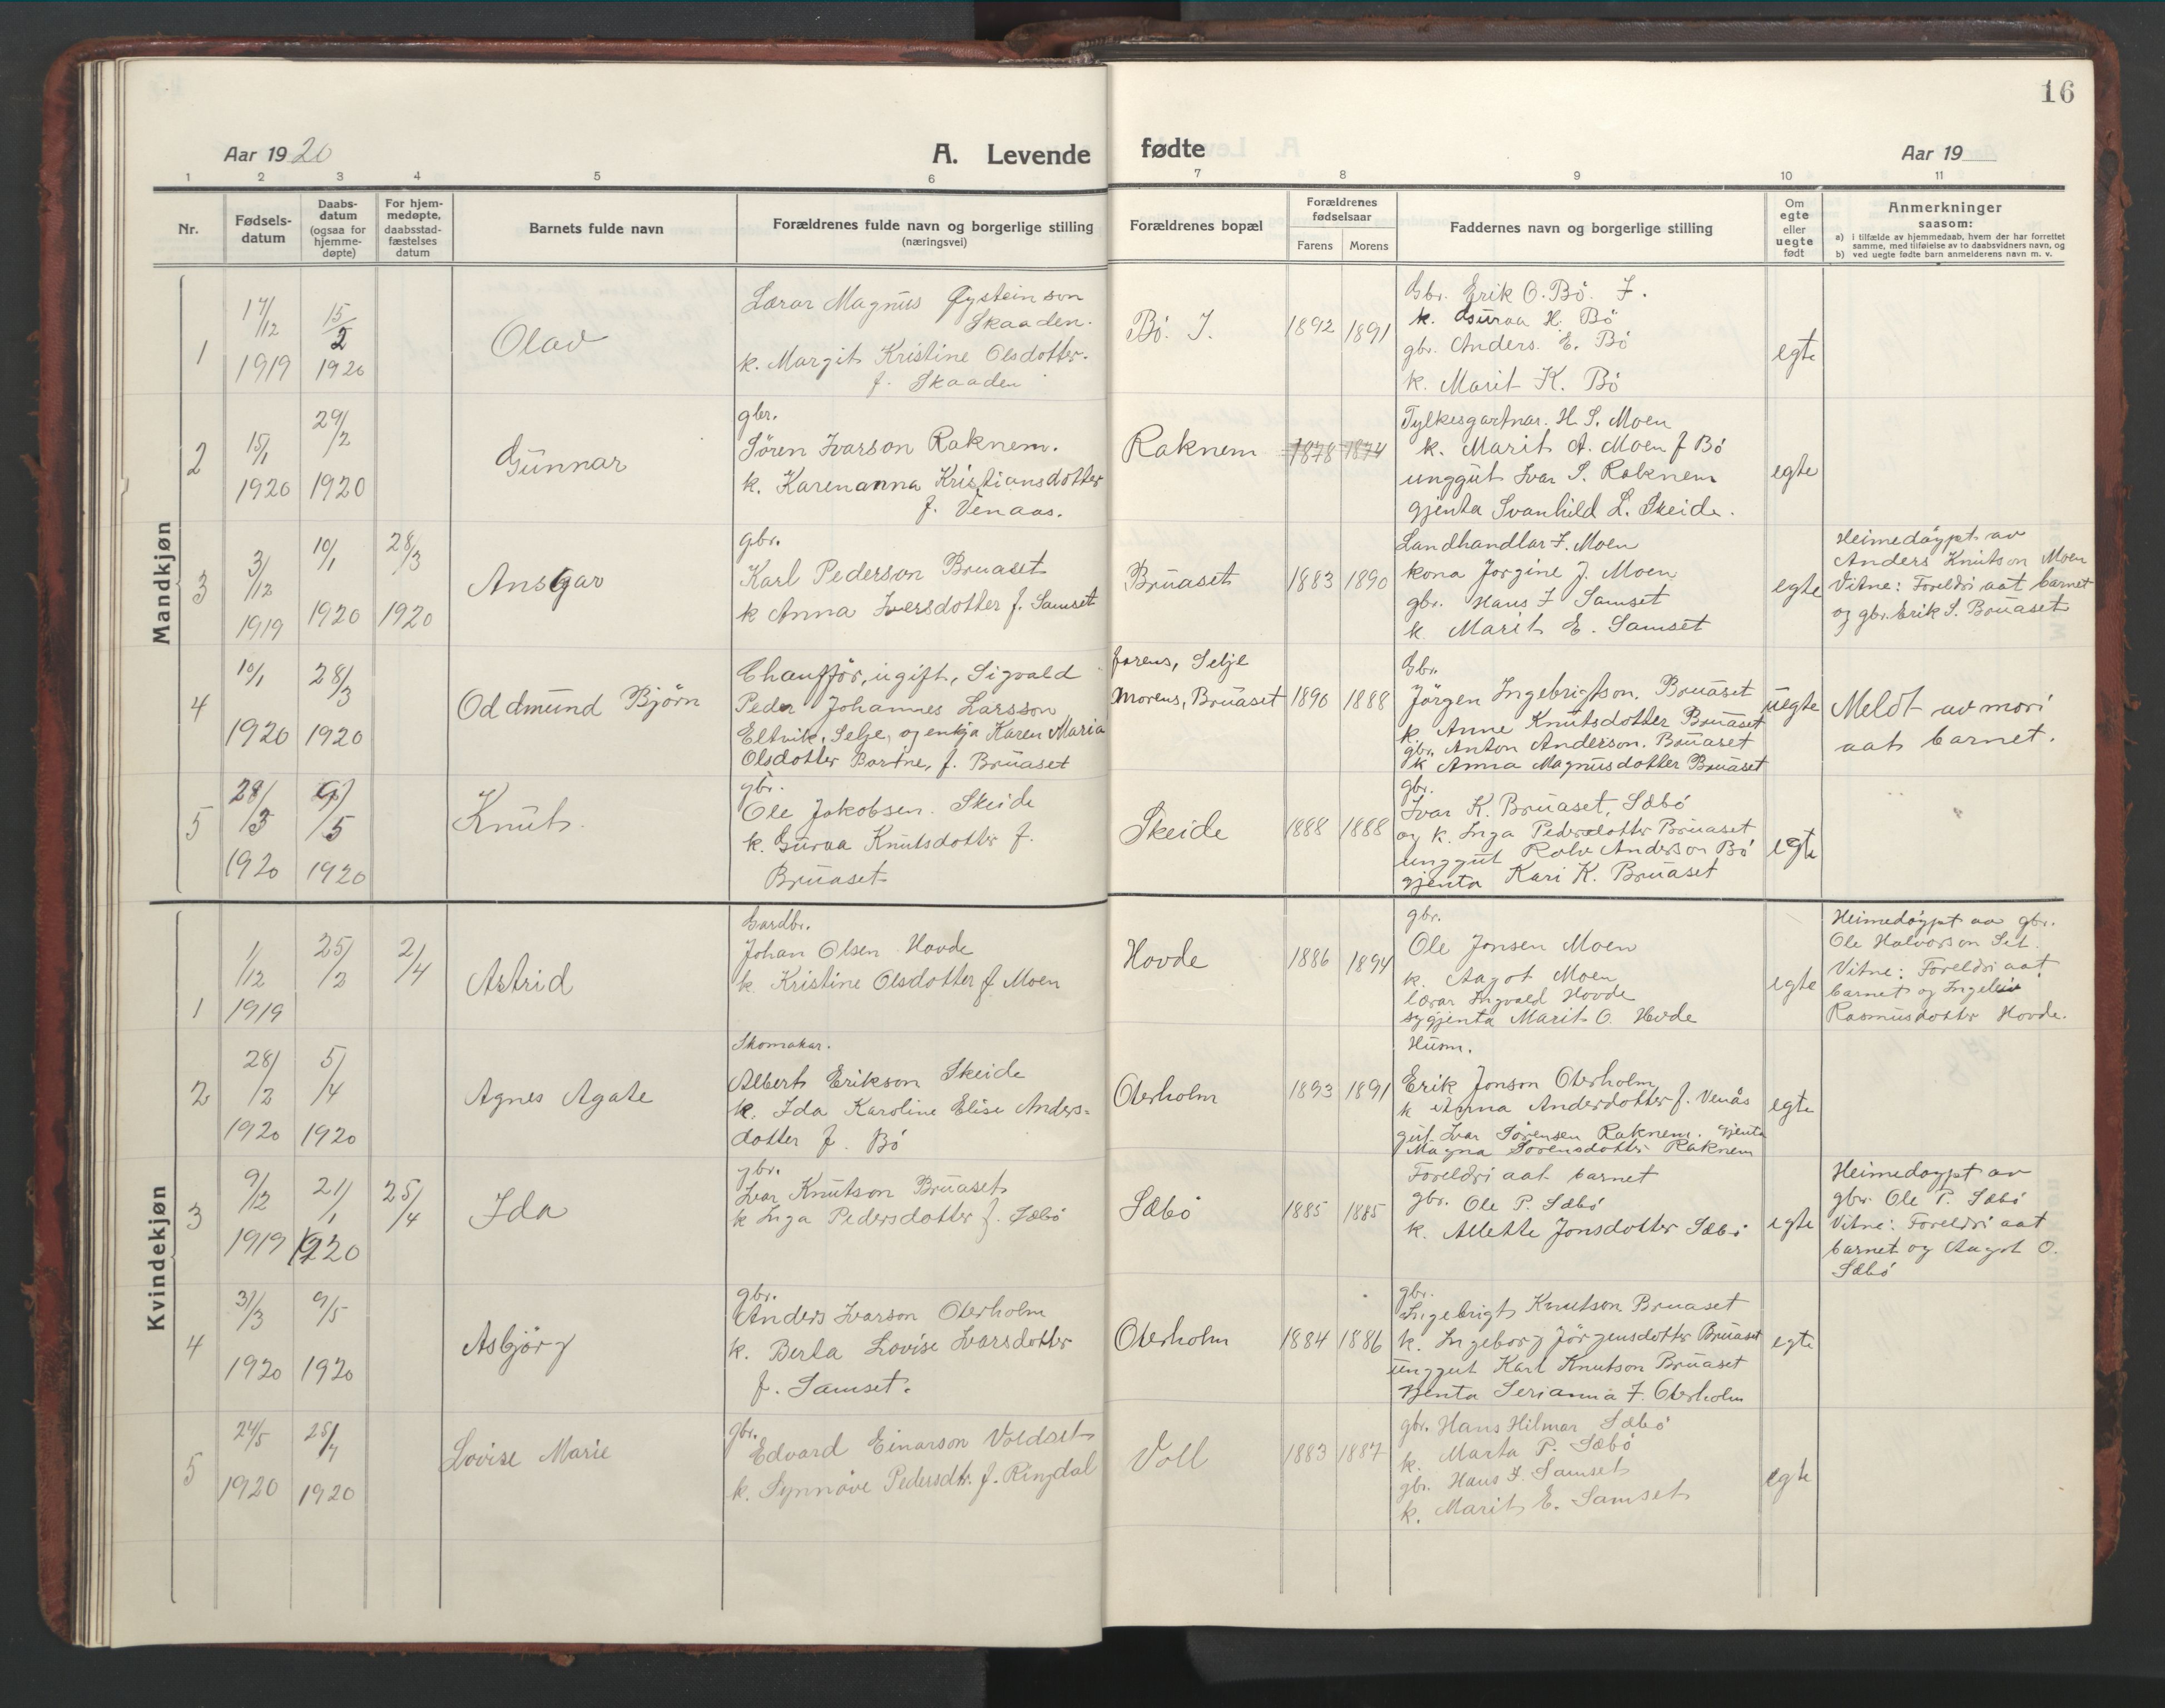 16
Aar 1920
A. Levende
fødte
Aar 19
1 2 3 4 5 6 7 8 9 10 11
Nr.
Fødsels-
datum
Daabs-
datum
(ogsaa for
hjemme-
døpte)
For hjem-
medøpte,
daabsstad-
fæstelses
datum
Barnets fulde navn
Forældrenes fulde navn og borgerlige stilling
(næringsvei)
Forældrenes bopæl
Forældrenes
fødselsaar
Farens Morens
Faddernes navn og borgerlige stilling
Om
egte
eller
uegte
født
Anmerkninger
saasom:
a) i tilfælde av hjemmedaab, hvem der har forrettet
samme, med tilføielse av to daabsvidners navn, og
b) ved uegte fødte barn anmelderens navn m. v.
Mandkjøn
1
17/12
1919
15/2
1920
Olav
Lærar Magnus Øysteinson
Skaaden.
k. Margit Kristine Olsdotter.
f. Skaaden
Bö. I.
1892 1891
Gbr. Erik O. Bö. I.
k. Guraa H. Bö
gbr. Anders. E. Bö
k. Marit K. Bö
egte
2
15/1
1920
29/2
1920
Gunnar
gbr.
Sören Ivarson Raknem.
k. Karenanna Kristiansdotter
f. Venaas.
Raknem
1878 1874
Fylkesgartnar. H. S. Moen
k. Marit A. Moen f Bö
unggut Ivar S. Raknem
gjenta Svanhild L. Skeide.
egte
3
3/12
1919
10/1
1920
28/3
1920
Ansgar
gbr.
Karl Pederson Bruaset
k Anna Iversdotter f. Samset
Bruaset
1883 1890
Landhandlar I. Moen
kona Jorgine J. Moen
gbr. Hans I Samset
k. Marit E. Samset
egte
Heimedöypt av
Anders Knutson Moen
Vitne: Foreldri aat barnet
og gbr. Erik S. Bruaset
4
10/1
1920
28/3
1920
Oddmund Bjørn
Chaufför, ugift, Sigvald
Peder Johannes Larsson
Eltvik, Selje, og enkja Karen Maria
Olsdotter Bortne, f. Bruaset
farens, Selje
morens, Bruaset
1890 1888
Gbr.
Jörgen Ingebrigtson. Bruaset
k. Anne Knutsdotter Bruaset
gbr. Anton Anderson. Bruaset
k Anna Magnusdotter Bruaset
uegte
Meldt av mori
aat barnet.
5
28/3
1920
9/5
1920
Knut
gbr.
Ole Jakobsen. Skeide
k. Guraa Knutsdotter f.
Bruaset
Skeide
1888 1888
gbr.
Ivar K. Bruaset, Sæbö
og k. Inga Pedersdotter Bruaset
unggut Rolv Anderson Bö
gjenta Kari K. Bruaset
egte
Kvindekjøn
1
1/12
1919
25/2
2/4
Astrid
Gardbr.
Johan Olsen Hovde
k. Kristine Olsdotter f Moen
Hovde
1886 1894
gbr.
Ole Jonsen Moen
k. Aagot Moen
lærar Ingvald Hovde
sygjenta Marit O. Hovde
egte
Heimedöypt av gbr.
Ole Halvorson Set.
Vitne: Foreldri aat
barnet og Ingeleiv
Rasmusdotter Hovde.
2
28/2
1920
5/4
1920
Agnes Agate
Skomakar.
Albert Erikson Skeide
k. Ida Karoline Elise Anders-
dotter f. Bö
Oterholm
1893 1891
Husm.
Erik Jonson Oterholm
k Anna Anderdotter f. Venås
gut Ivar Sörensen Raknem. gjenta
Magna Sörensdotter Raknem
egte
3
9/12
1919
21/1
1920
25/4
Ida
gbr.
Ivar Knutson Bruaset
k Inga Pedersdotter f. Sæbö
Sæbö
1885 1885
Foreldri aat barnet
gbr. Ole P. Sæbö
k. Allette Jonsdotter Sæbö
egte
Heimedöypt av
gbr. Ole P. Sæbö
Vitne: Foreldri aat
barnet og Aagot O.
Sæbö
4
31/3
1920
9/5
1920
Asbjörg
gbr.
Anders Ivarson Oterholm
k. Berta Lovise Ivarsdotter
f. Samset.
Oterholm
1884 1886
gbr.
Ingebrigt Knutson Bruaset
k. Ingeborg Jörgensdotter Bruaset
unggut Karl Knutson Bruaset
gjenta Serianna I. Oterholm
egte
5
24/5
1920
25/7
1920
Lovise Marie
gbr.
Edvard Einarson Voldset
k. Synnöve Pedersdtr. f. Ringdal
Voll
1883 1887
gbr. Hans Hilmar Sæbö
k. Marta P. Sæbö
gbr. Hans I. Samset
k. Marit E. Samset
egte